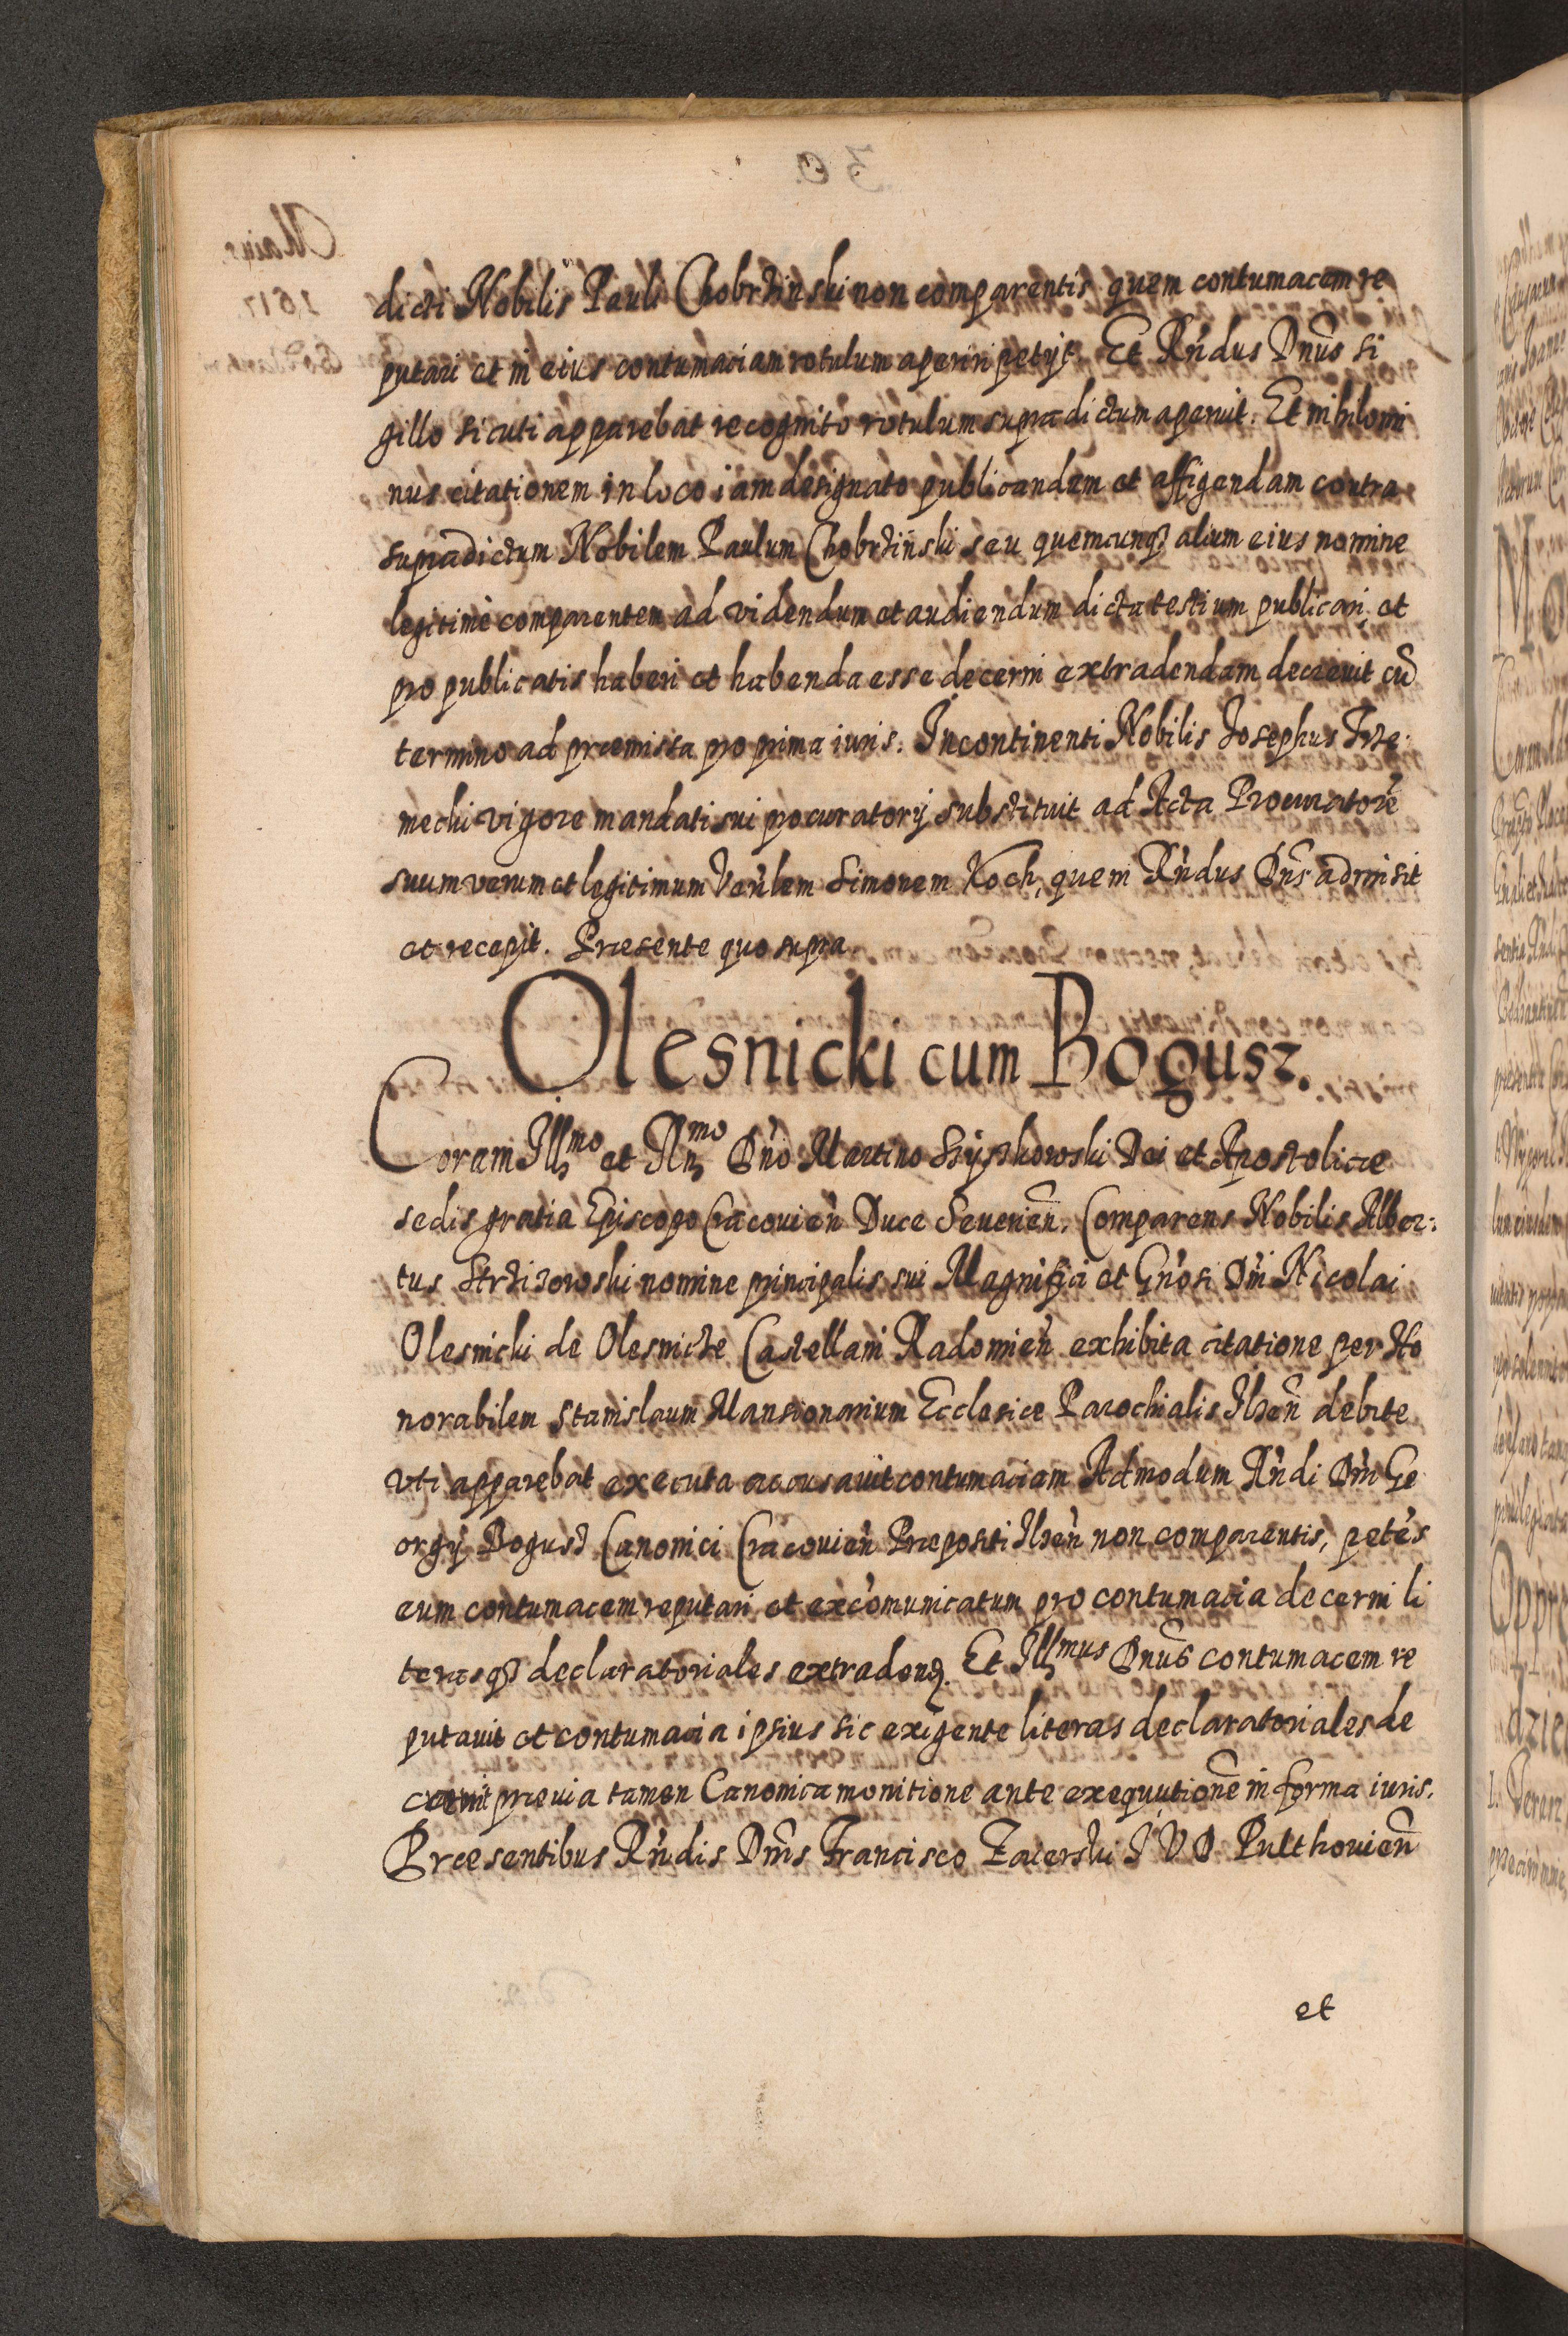 dicti Nobilis Pauli Chobrzinski non comparentis quem contumacem re
putari et in eius contumaciam rotulum aperiri petijt. Et Rñdus Dnūs si
gillo sicuti apparebat recognito rotulum supradictum aperuit. Et nihilomi
nus citationem in loco iam designato publicandam et affigendam contra
supradictum Nobilem Paulum Chobrzinski seu quemcunqꝫ alium eius nomine
legitimè comparentem ad videndum et audiendum dicta testium publicari et
pro publicatis haberi et habenda esse decerni extradendam decrevit cũ
termino ad præmissa pro prima iuris. Incontinenti Nobilis Josephus
mecki vigore mandati sui procuratorij substituit ad Acta Procuratorẽ
suum verum et legitimum Simonem Koch, quem Rñdus Dñs admisit
et recepit. Præsente quo supra
Olesnicki cum Bogusz.
Coram Illmo et Rmo Dño Martino Szyszkowski Dei et Apostolicæ
sedis gratia Episcopo Cracovieñ Duce Severieñ. Comparens Nobilis Alber:
tus nomine principalis sui Magnifici et Gñosi Dñi Nicolai
Olesnicki de Olesnicze Castellani Radomieñ exhibita citatione per Ho
norabilem Stanislaum Mansionarium Ecclesiæ Parochialis Ilzeñ debite
vti apparebat executa accusavit contumaciam Admodum Rñdi Dñi Ge
orgij Bogusz Canonici Cracovieñ Præpositi Ilzeñ non comparentis, petẽs
eum contumacem reputari et excõmunicatum pro contumacia decerni li
terasqꝫ declaratoriales extradend. Et Illmus Dnūs contumacem re
putavit et contumacia ipsius sic exigente literas declaratoriales de
crevit prævia tamen Canonica monitione ante exequutionẽ in forma iuris.
Præsentibus Rñdis Dñis Francisco Zacerski I V D Pulthovieñ
et